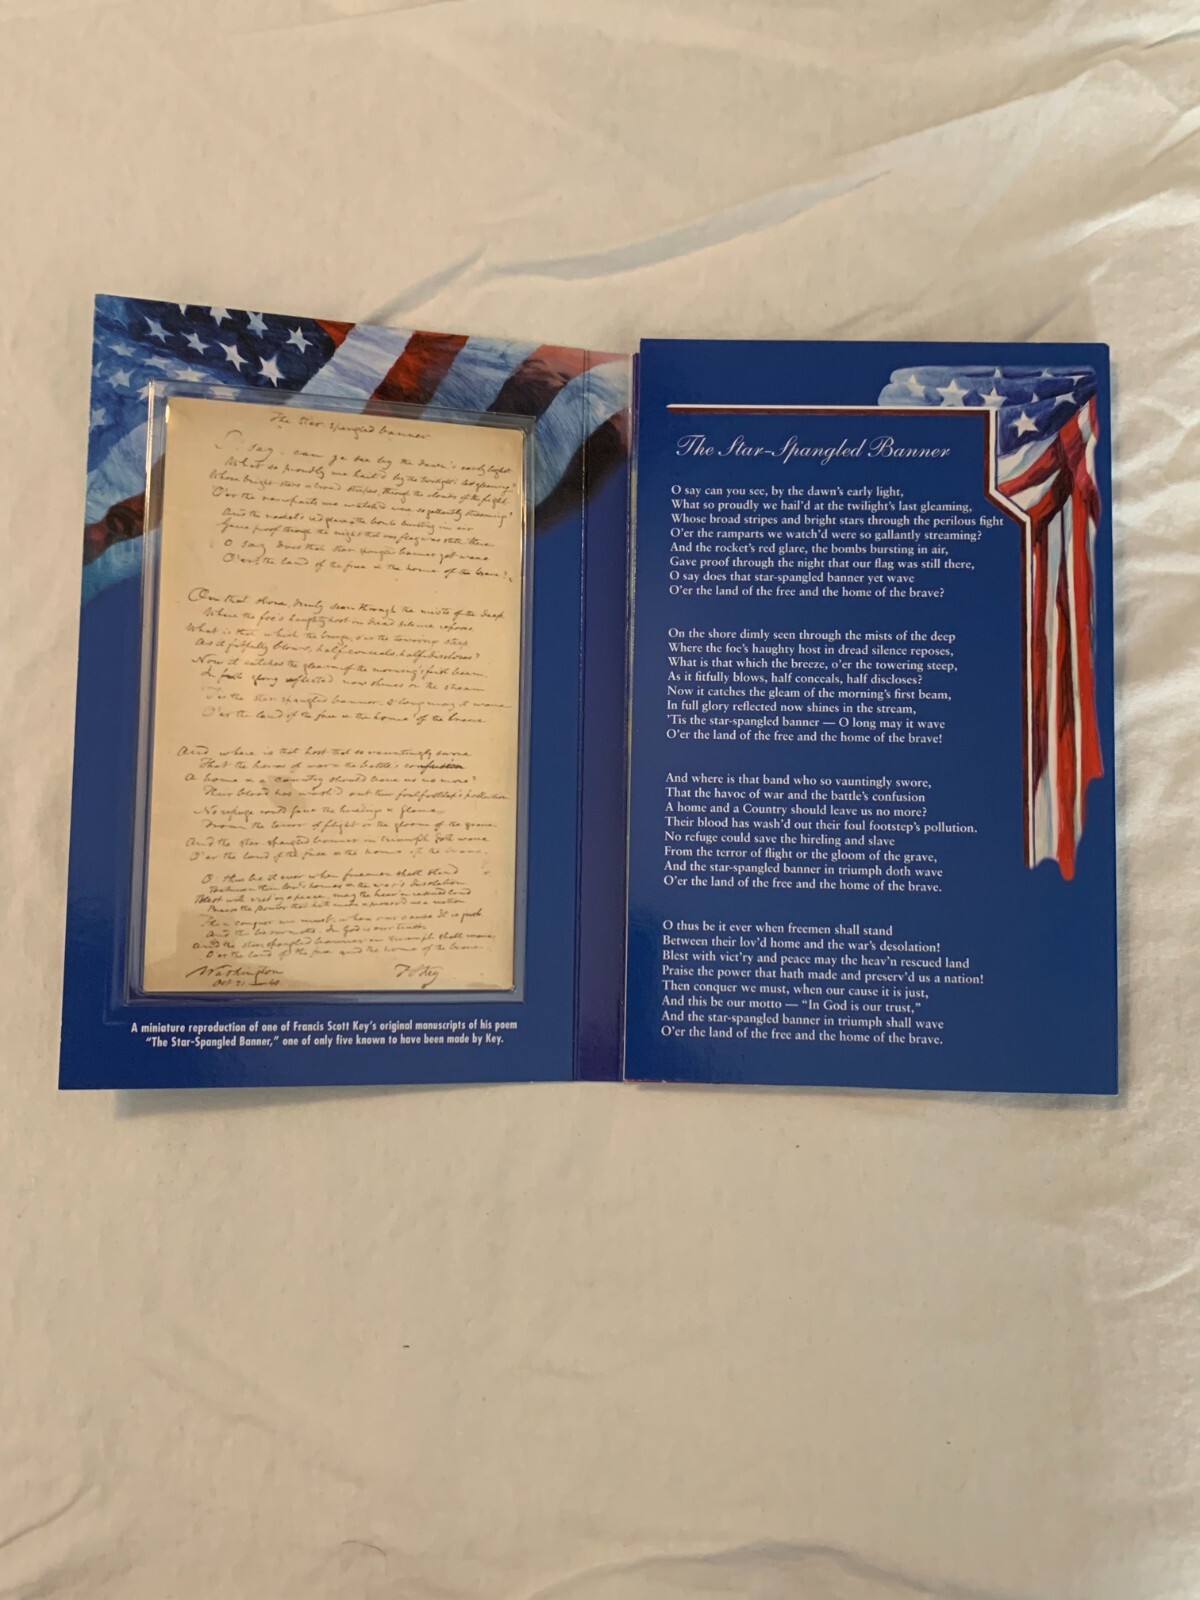 The Star Spangled banner
O! say, can ye see by the dawn's early light
What so proudly we hail'd by the twilight's last gleaming?
Whose bright stars & broad stripes, through the clouds of the fight
O'er the ramparts we watch'd were so gallantly streaming?
And the rocket's red glare, the bombs bursting in air
Gave proof through the night that our flag was still there
O! say, does that star spangled banner yet wave
O'er the land of the free & the home of the brave?
On that shore, dimly seen through the mists of the deep
Where the foe's haughty host in dread silence reposes
What is that which the breeze, o'er the towering steep
As it fitfully blows, half conceals, half discloses?
Now it catches the gleam of the morning's first beam
In full glory reflected now shines on the stream
'Tis the star spangled banner. O long may it wave
O'er the land of the free & the home of the brave
And where is that host that so vauntingly swore
That the havoc of war & the battle's confusion
A home & a country should leave us no more?
Their blood has wash'd out their foul footstep's pollution
No refuge could save the hireling & slave
From the terror of flight or the gloom of the grave
And the star spangled banner in triumph doth wave
O'er the land of the free & the home of the brave.
O! thus be it ever when freemen shall stand
Between their lov'd homes & the war's desolation
Blest with vict'ry & peace, may the heav'n rescued land
Praise the power that hath made & preserv'd us a nation
Then conquer we must, when our cause it is just
And this be our motto. In God is our trust
And the star spangled banner in triumph shall wave
O'er the land of the free and the home of the brave.
Washington
Oct 21 — 40
F S Key
A miniature reproduction of one of Francis Scott Key's original manuscripts of his poem
"The Star-Spangled Banner," one of only five known to have been made by Key.
The Star-Spangled Banner
O say can you see, by the dawn's early light,
What so proudly we hail'd at the twilight's last gleaming,
Whose broad stripes and bright stars through the perilous fight
O'er the ramparts we watch'd were so gallantly streaming?
And the rocket's red glare, the bombs bursting in air,
Gave proof through the night that our flag was still there,
O say does that star-spangled banner yet wave
O'er the land of the free and the home of the brave?
On the shore dimly seen through the mists of the deep
Where the foe's haughty host in dread silence reposes,
What is that which the breeze, o'er the towering steep,
As it fitfully blows, half conceals, half discloses?
Now it catches the gleam of the morning's first beam,
In full glory reflected now shines in the stream,
'Tis the star-spangled banner — O long may it wave
O'er the land of the free and the home of the brave!
And where is that band who so vauntingly swore,
That the havoc of war and the battle's confusion
A home and a Country should leave us no more?
Their blood has wash'd out their foul footstep's pollution.
No refuge could save the hireling and slave
From the terror of flight or the gloom of the grave,
And the star-spangled banner in triumph doth wave
O'er the land of the free and the home of the brave.
O thus be it ever when freemen shall stand
Between their lov'd home and the war's desolation!
Blest with vict'ry and peace may the heav'n rescued land
Praise the power that hath made and preserv'd us a nation!
Then conquer we must, when our cause it is just,
And this be our motto — "In God is our trust,"
And the star-spangled banner in triumph shall wave
O'er the land of the free and the home of the brave.